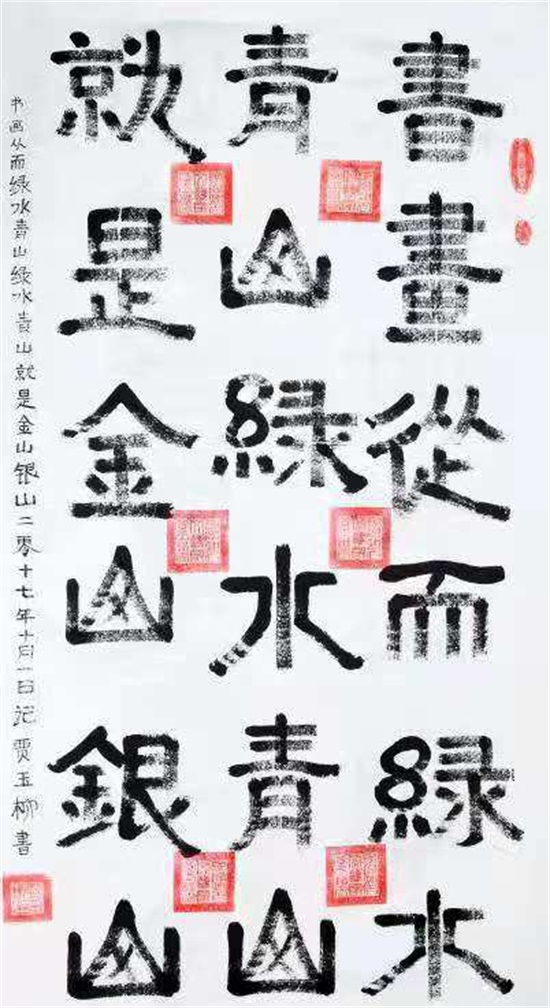 書畫從而緑水
青山緑水青山
就是金山銀山
书画从而绿水青山绿水青山就是金山银山二零十七年十月一日记 贾玉柳书